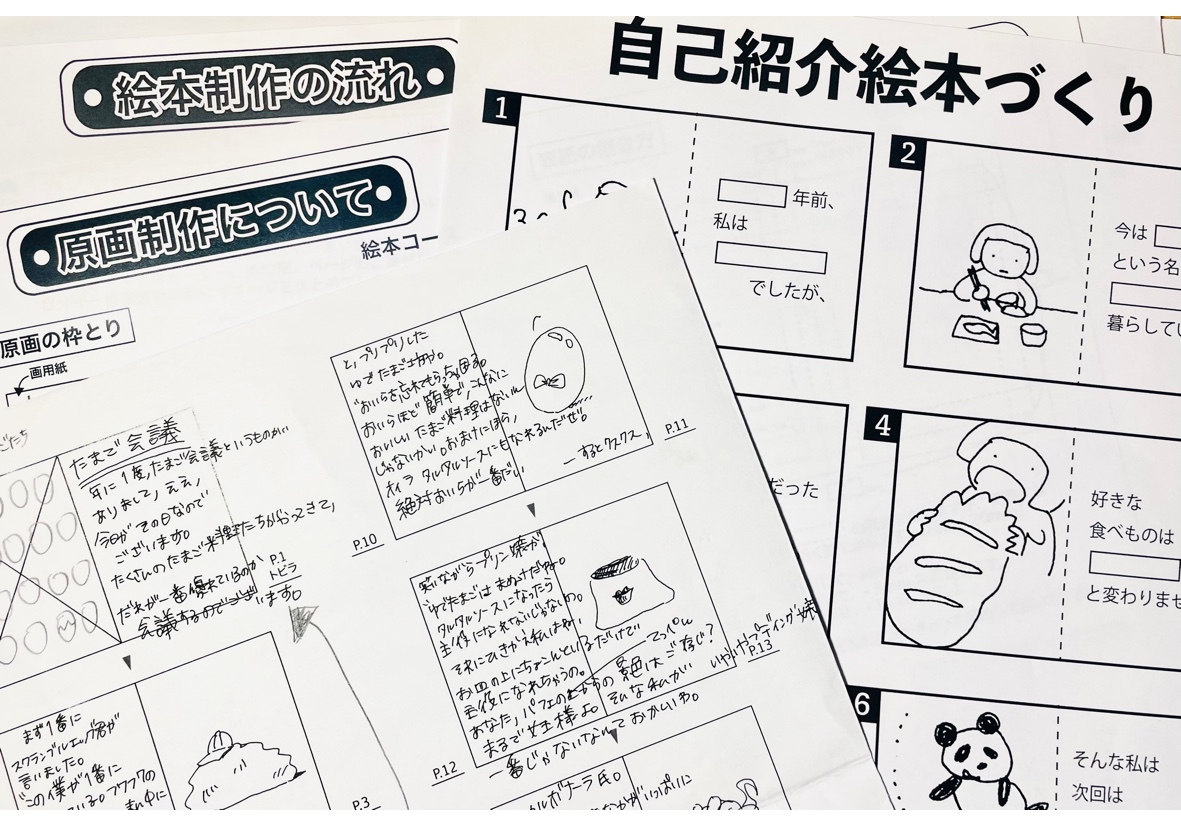 絵本制作の流れ
原画制作について
絵本コー
原画の枠とり
画用紙
自己紹介絵本づくり
1
年前、
私は
でしたが、
2
今は
という名
暮らしてい
だった
4
好きな
食べものは
と変わりませ
6
そんな私は
次回は
たまご会議
年に1度、たまご会議というものが
ありまして、ええ、
今日がその日なので
ございます。
たくさんのたまご料理たちがやってきて、
だれが一番優れているのか
会議するのでございます。
P.1
トビラ
まず1番に
スクランブルエッグ君が
言いました。
この僕が1番に
P.3
と、プリプリした
ゆでたまご
おいらを忘れてもらっちゃ困る。
おいらほど簡単で、こんなに
おいしいたまご料理はないん
じゃないかい。おまけにほら、
オイラ タルタルソースにもなれるんだぜ。
絶対おいらが一番だい
ーするとクスクス、
P.10
P.11
笑いながらプリン嬢が
ゆでたまごは
タルタルソースになったら
主役になれないじゃないの。
それにひきかえ私はね、
お皿の上にちょこんといるだけで
主役になれちゃうの。
あなた、パフェのてっぺん
からの景色はご存じ？
まるで女王様よ。そんな私が
一番じゃないなんておかしいわ。
P.12
いやいやプディング嬢
P.13
ルボナーラ氏。